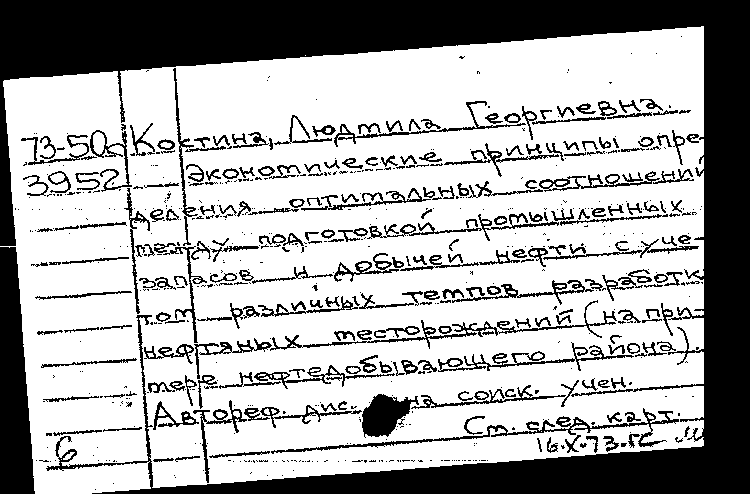 73-50а Костина, Людмила Георгиевна.
3952 Экономические принципы опре-
деления оптимальных соотношений
между подготовкой промышленных
запасов и добычей нефти с уче-
том различных темпов разработк
нефтяных месторождений (на при-
мере нефтедобывающего района).
Автореф. дис. на соиск. учен.
См. след. карт.
6 16.X.73.ГС